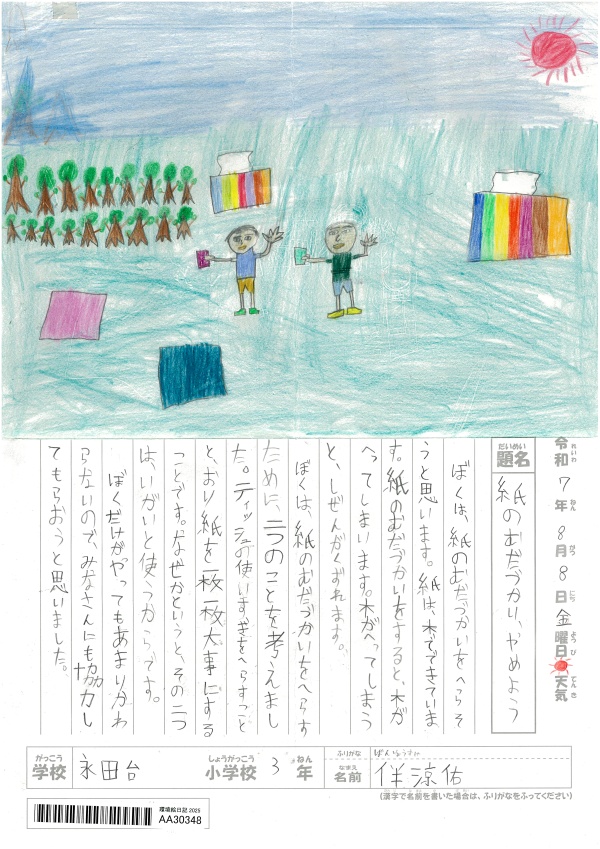 令和7年8月8日金曜日天気
れいわ ねん がつ にち ようび てんき
だいめい
題名
紙のむだづかい、やめよう
ぼくは、紙のむだづかいをへらそ
うと思います。紙は、木でできていま
す。紙のむだづかいをすると、木が
へってしまいます。木がへってしまう
と、しぜんがくずれます。
ぼくは、紙のむだづかいをへらす
ために、二つのことを考えまし
た。ティッシュの使いすぎをへらすこと
と、おり紙を一枚一枚大事にする
ことです。なぜかというと、その二つ
は、いがいと使うからです。
ぼくだけがやってもあまりかわ
らないので、みなさんにも協力し
てもらおうと思いました。
がっこう
学校
永田台
しょうがっこう
小学校
3
ねん
年
ふりがな
なまえ
名前
伴涼佑
(漢字で名前を書いた場合は、ふりがなをふってください)
環境絵日記 2025
AA30348